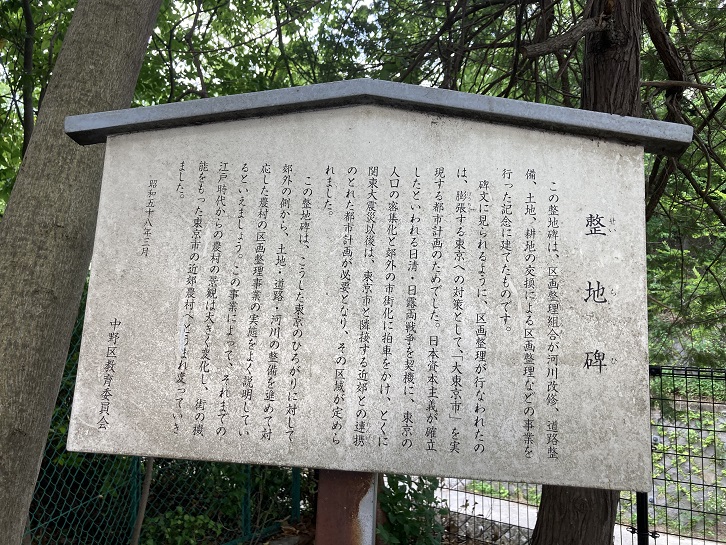 整地碑
せいちひ
この整地碑は、区画整理組合が河川改修、道路整
備、土地、耕地の交換による区画整理などの事業を
行った記念に建てたものです。
碑文に見られるように、区画整理が行なわれたの
は、膨張する東京への対策として「大東京市」を実
現する都市計画のためでした。日本資本主義が確立
したといわれる日清・日露両戦争を契機に、東京の
人口の密集化と郊外の市街化に拍車をかけ、とくに
関東大震災以後は、東京市と隣接する近郊との連携
のとれた都市計画が必要となり、その区域が定めら
れました。
この整地碑は、こうした東京のひろがりに対して
郊外の側から、土地・道路・河川の整備を進めて対
応した農村の区画整理事業の実態をよく説明してい
るといえましょう。この事業によって、それまでの
江戸時代からの農村の景観は大きく変化し、街の機
能をもった東京市の近郊農村へとうまれ変っていき
ました。
昭和五十八年三月
中野区教育委員会